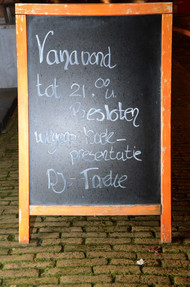 Vanavond
tot 21.00u
Besloten
wegens Boek-
presentatie
DJ-